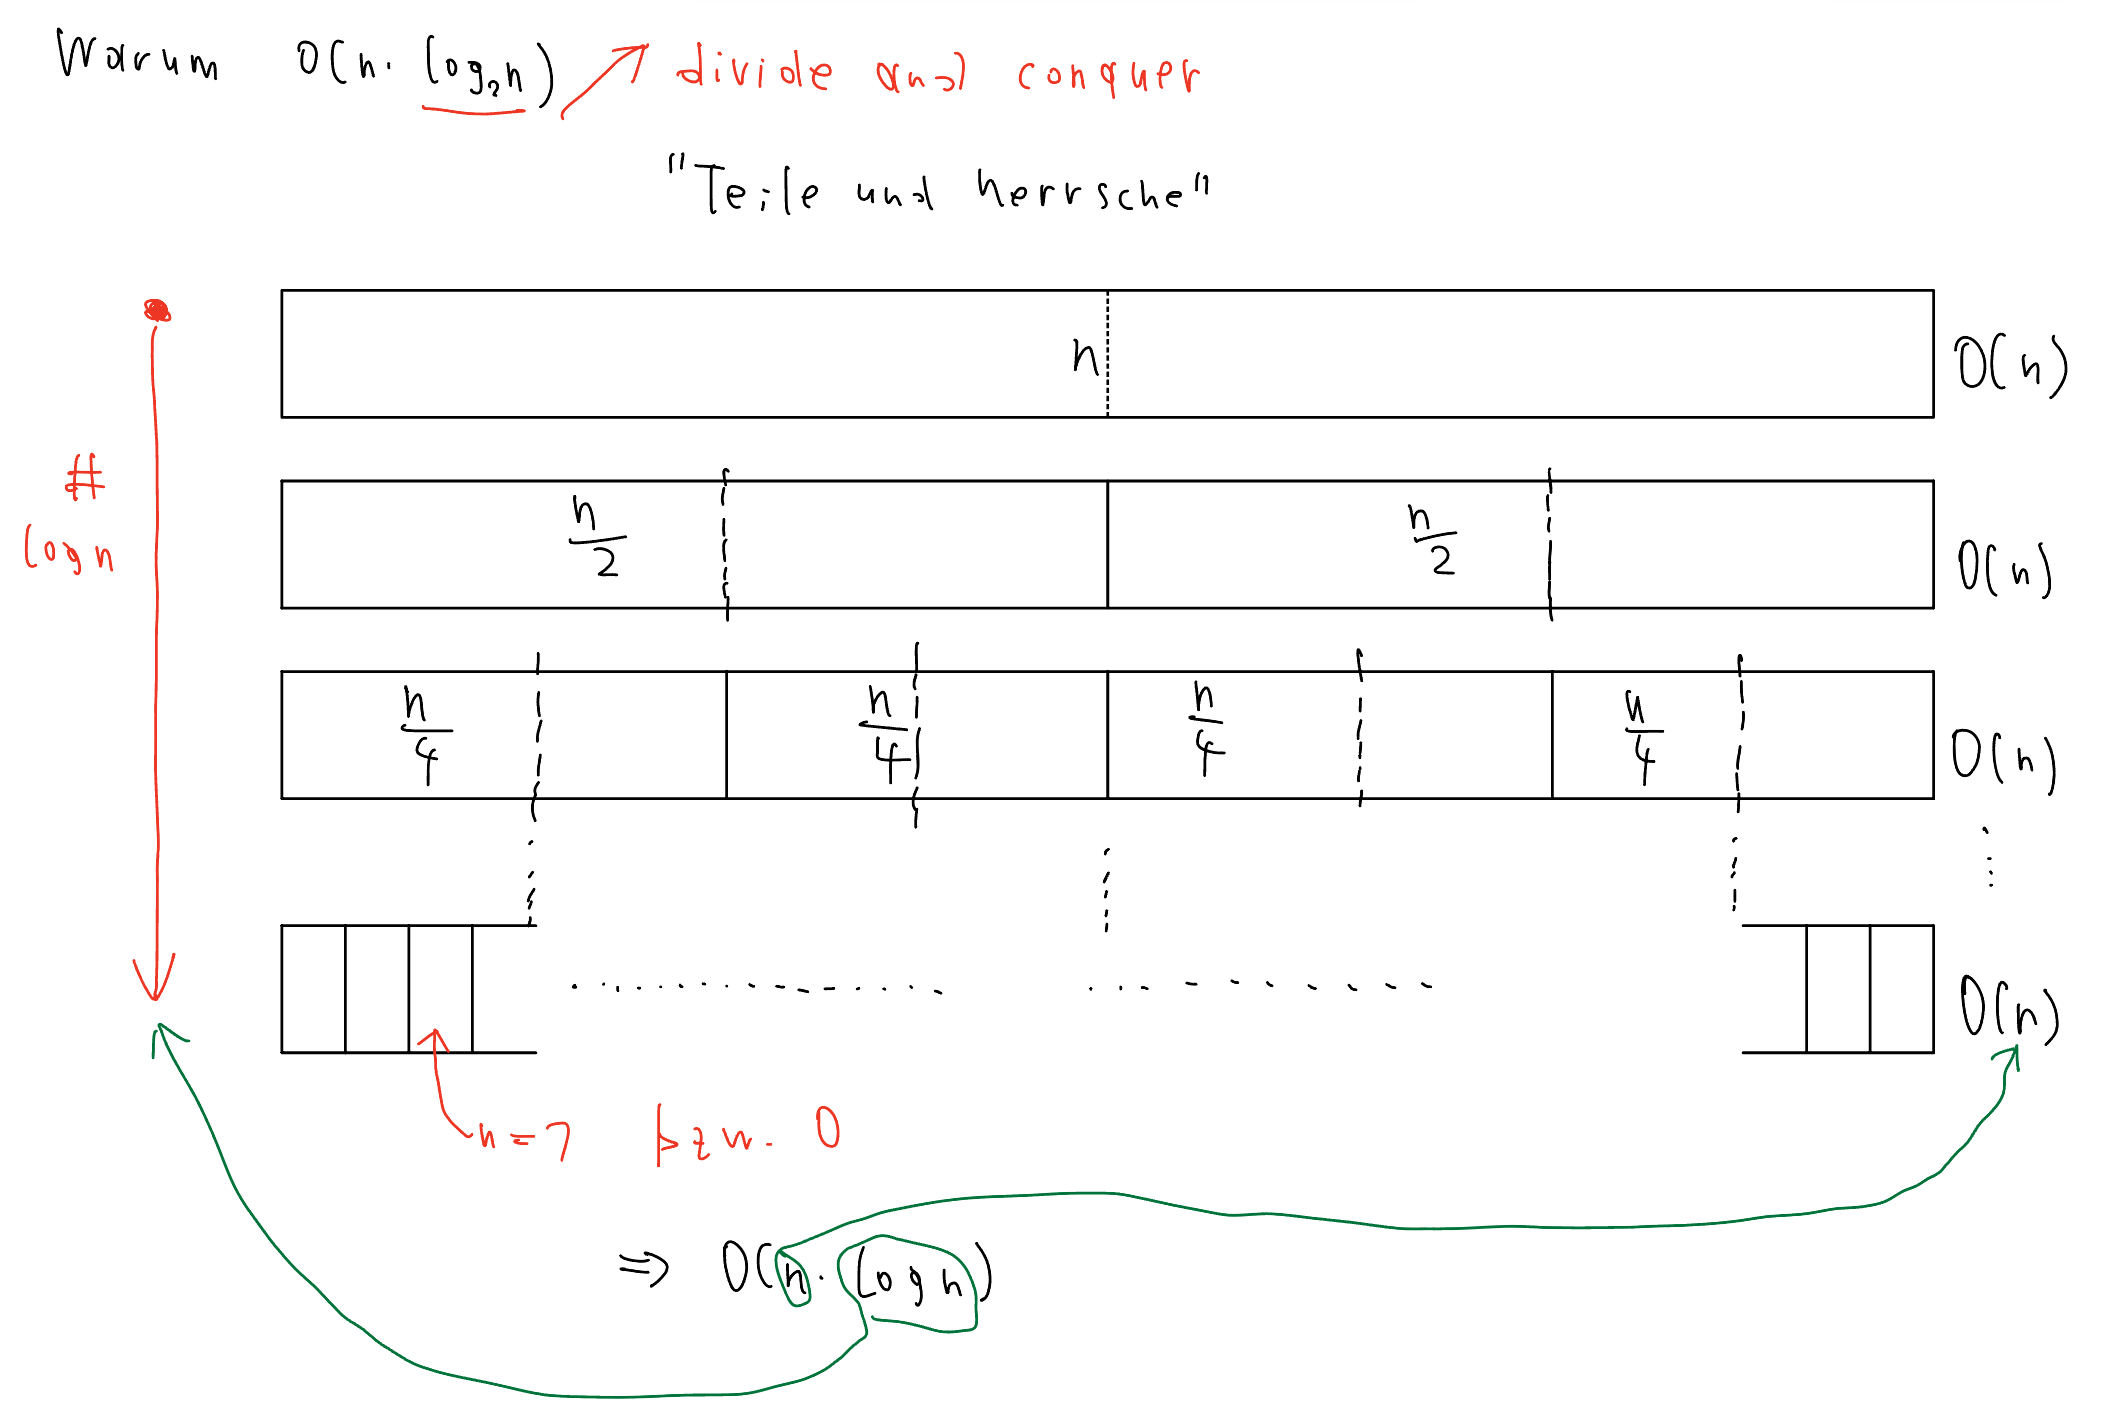 Warum O(n. log₂n) divide and conquer
"Teile und herrsche"
n O(n)
#
log n
n/2 n/2 O(n)
n/4 n/4 n/4 n/4 O(n)
O(n)
n=1 bzw. 0
⇒ O(n. log n)